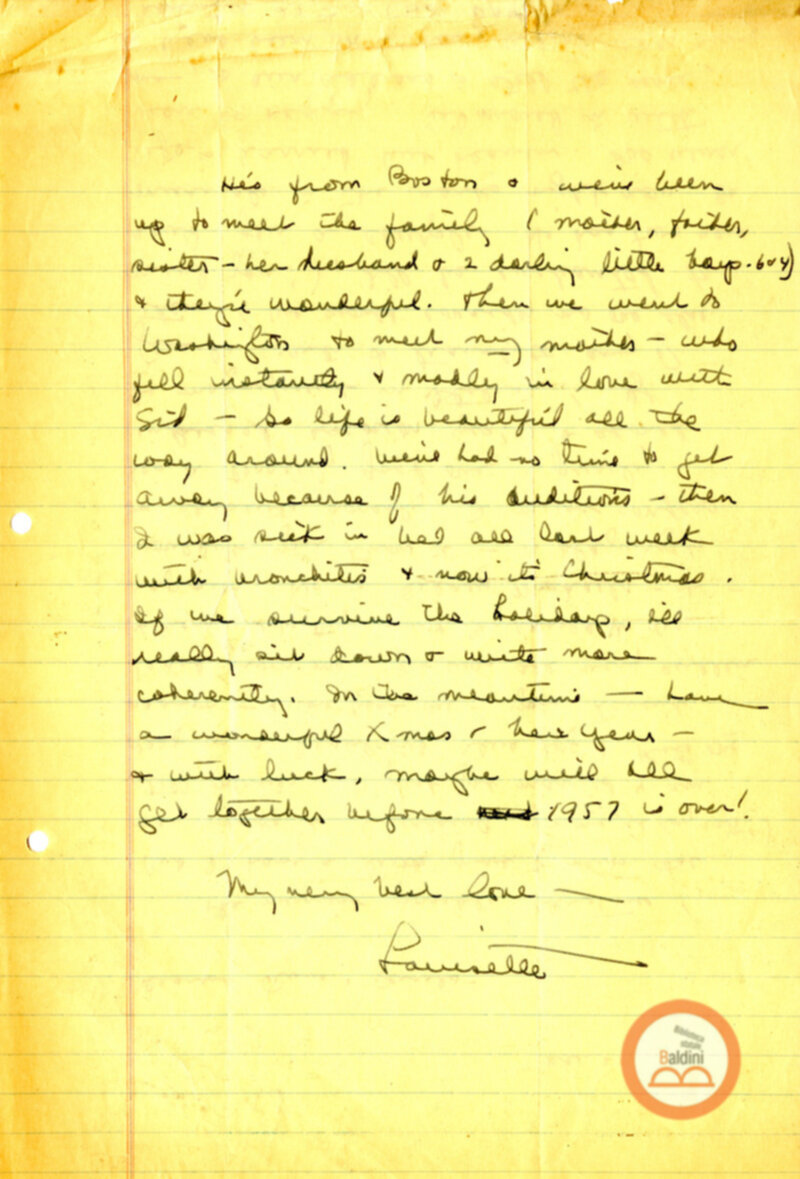 He's from Boston & we've been
up to meet the family (mother, father,
sister - her husband & 2 darling little boys - 6 & 4)
& they're wonderful. Then we went to
Washington to meet my mother - who
fell instantly & madly in love with
Sid - So life is beautiful all the
way around. We've had no time to get
away because of his auditions - then
I was sick in bed all last week
with bronchitis & now it's Christmas.
If we survive the holidays, I'll
really sit down & write more
coherently. In the meantime — have
a wonderful Xmas & New Year -
& with luck, maybe we'll all
get together before 1957 is over!
My very best love —
Louisette
Biblioteca
statale
Baldini